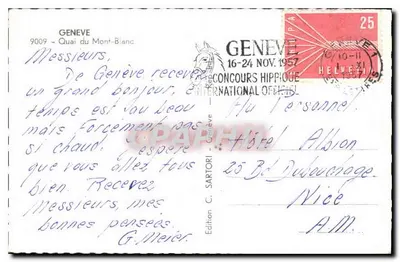 GENEVE
9009 - Quai du Mont-Blanc
Messieurs,
De Genève recevez
un grand bonjour,
temps est au beau
mais Forcément pas
si chaud. J'espère
que vous allez tous
bien. Recevez
Messieurs, mes
bonnes pensées.
G. Meier.
Edition C. SARTORI Genève
GENEVE
16-24 NOV. 1957
CONCOURS HIPPIQUE
INTERNATIONAL OFFICIEL
25
HELVETIA
Au Personnel
Hôtel Albion
25 Bd Dubouchage
Nice
A.M.